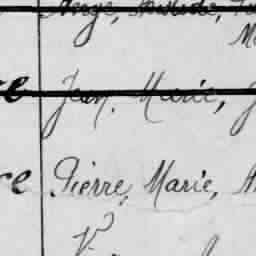 Ange,
M
re Jean, Marie, J
re Pierre, Marie, A
V